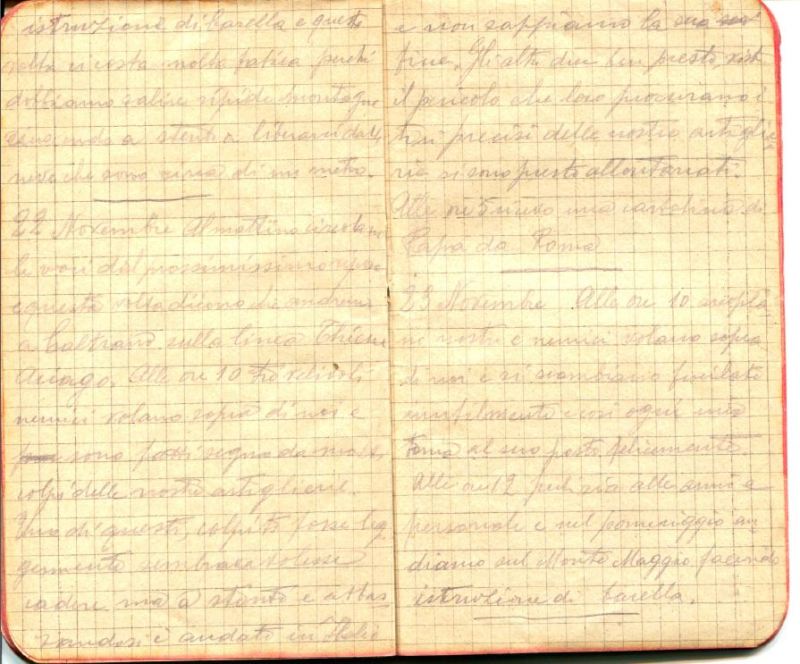 istruzione di barella e questa
volta ci costa molta fatica perché
dobbiamo salire ripide montagne
a stento a liberarci dalla
neve che sono circa di un metro.
22 Novembre Al mattino circolano
le voci del prossimissimo riposo
e questa volta dicono che andremo
a Caltrano sulla linea Thiene
Asiago. Alle ore 10 tre velivoli
nemici volano sopra di noi e
sono fatti segno da molti
colpi delle nostre artiglierie.
Uno di questi, colpito forse leg
germente sembrava volesse
cadere ma a stento e abbas
sandosi è andato in
e non sappiamo la sua
fine. Gli altri due ben presto, visto
il pericolo che loro procurano i
tiri precisi delle nostre artiglie
rie si sono presto allontanati.
Alle ore 5 ricevo una cartolina di
Papà da Roma
23 Novembre Alle ore 10 areopla
ni nostri e nemici volano sopra
di noi e si scambiano fucilate
inutilmente e così ogni uno
torna al suo posto felicemente.
Alle ore 12 pulizia alle armi e
personale e nel pomeriggio an
diamo sul Monte Maggio facendo
istruzione di barella.